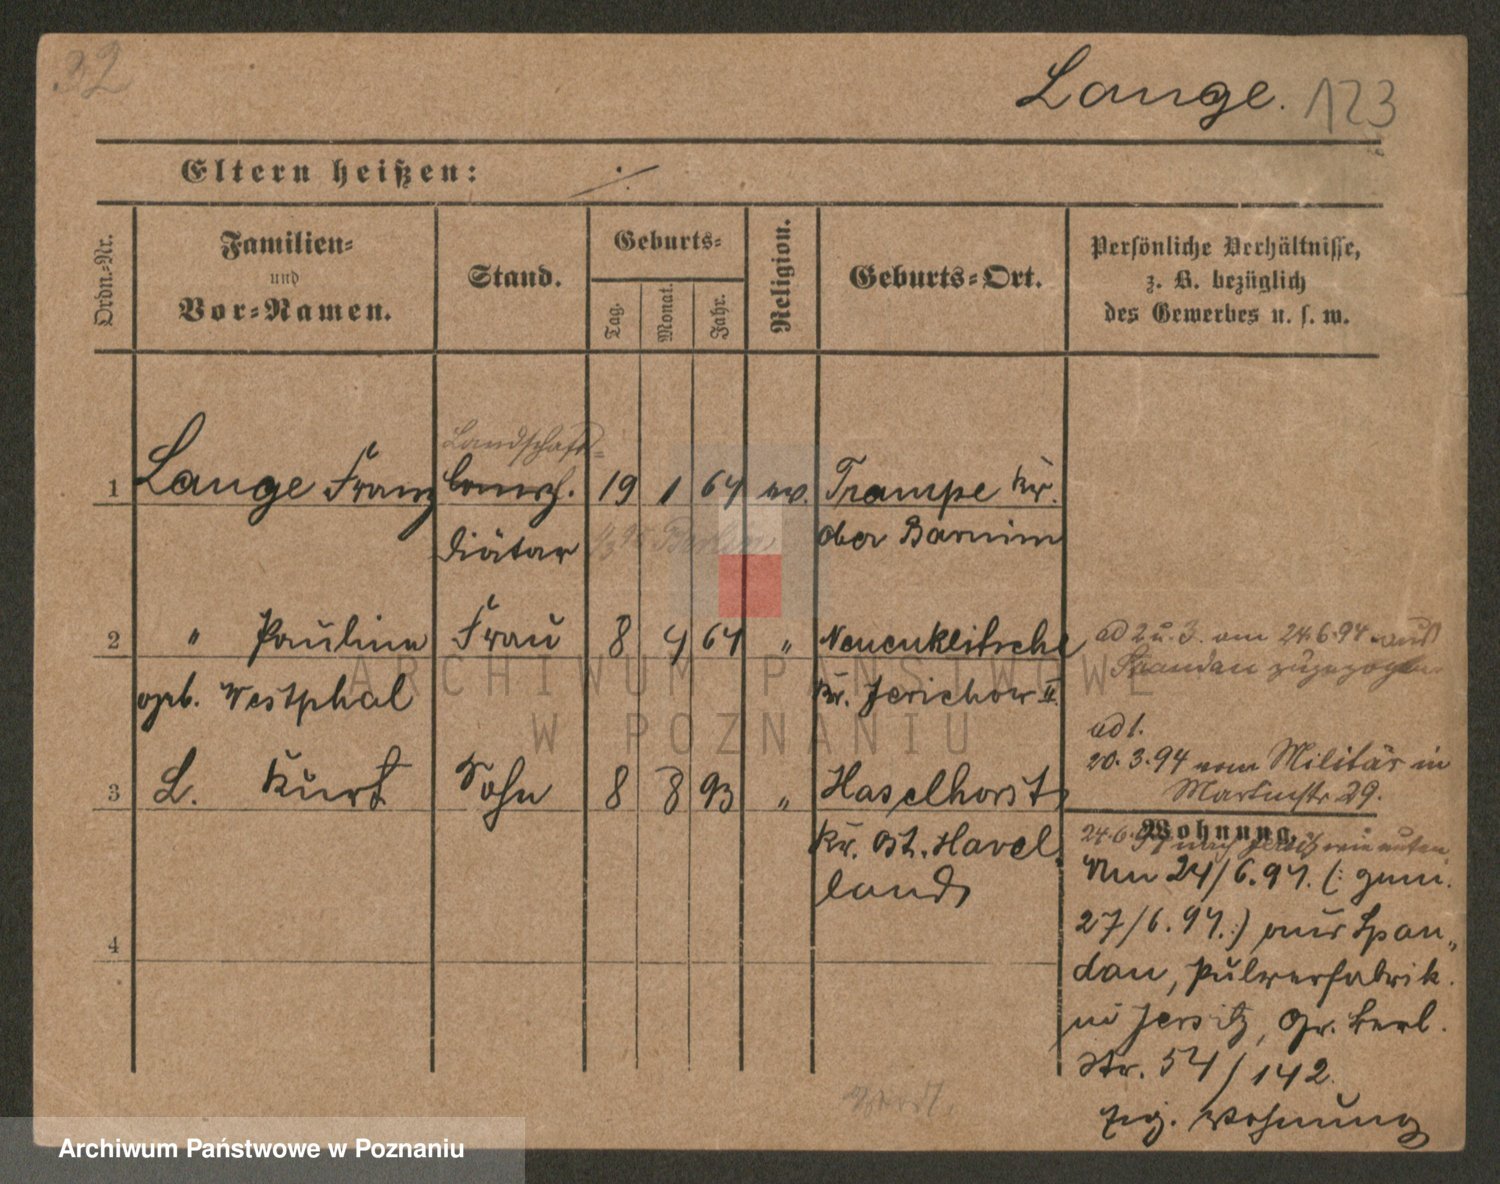 32
Lange. 123
Eltern heißen: ./.
Ordn.-Nr.
Familien-
und
Vor-Namen.
Stand.
Geburts-
Tag.
Monat.
Jahr.
Religion.
Geburts-Ort.
Persönliche Verhältnisse,
z. B. bezüglich
des Gewerbes u. s. w.
Landschafts-
1 Lange Franz 19 1 64 ev. Trampe Kr.
diätar Berlin Ober Barnim
2 " Pauline Frau 8 4 64 " Neuenklitsche
geb. Westphal Kr. Jerichow II.
ad 2 u. 3. am 24.6.94 aus
Spandau zugezogen
ad 1.
20.3.94 vom Militär in
Martinstr. 29.
3 L. Kurt Sohn 8 8 93 " Haselhorst
Kr. Ost. Havel
land
4
Wohnung.
24.6.94 nach Jersitz wie unten
Am 24/6.94. (: gem.
27/6.94.:) aus Span-
dau, Pulverfabrik
in Jersitz, Gr. Berl.
Str. 54/142
eig. Wohnung
ARCHIWUM PAŃSTWOWE
W POZNANIU
Archiwum Państwowe w Poznaniu